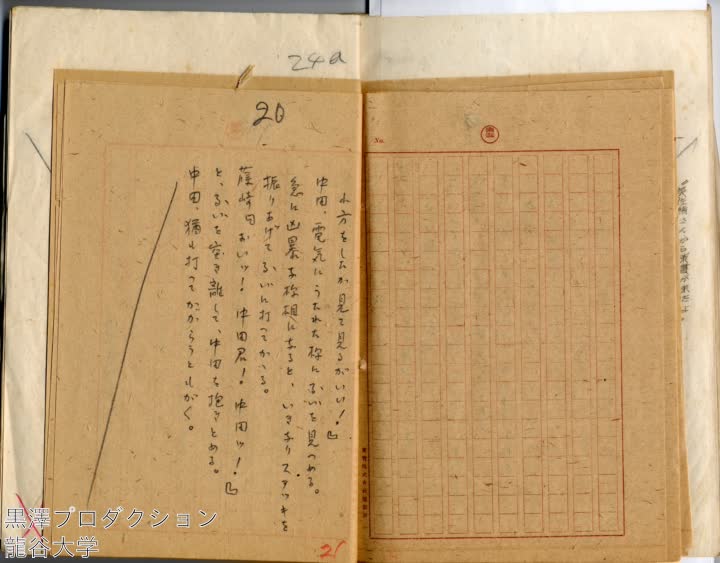 24a
20
れ方をしたか見て見るがいい!」
中田、電気にうたれた様にるいを見つめる。
急に凶暴な形相になると、いきなりステッキを
振りあげてるいに打ってかゝる。
藤崎「おいッ! 中田君! 中田ッ!」
と、るいを突き離して、中田を抱きとめる。
中田、猶も打ってかゝらうともがく。
No.
21
黒澤プロダクション
龍谷大学